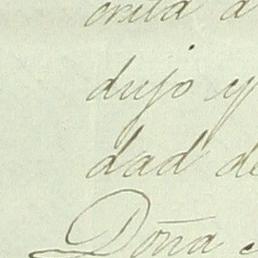 dujo y
dad de
Doña